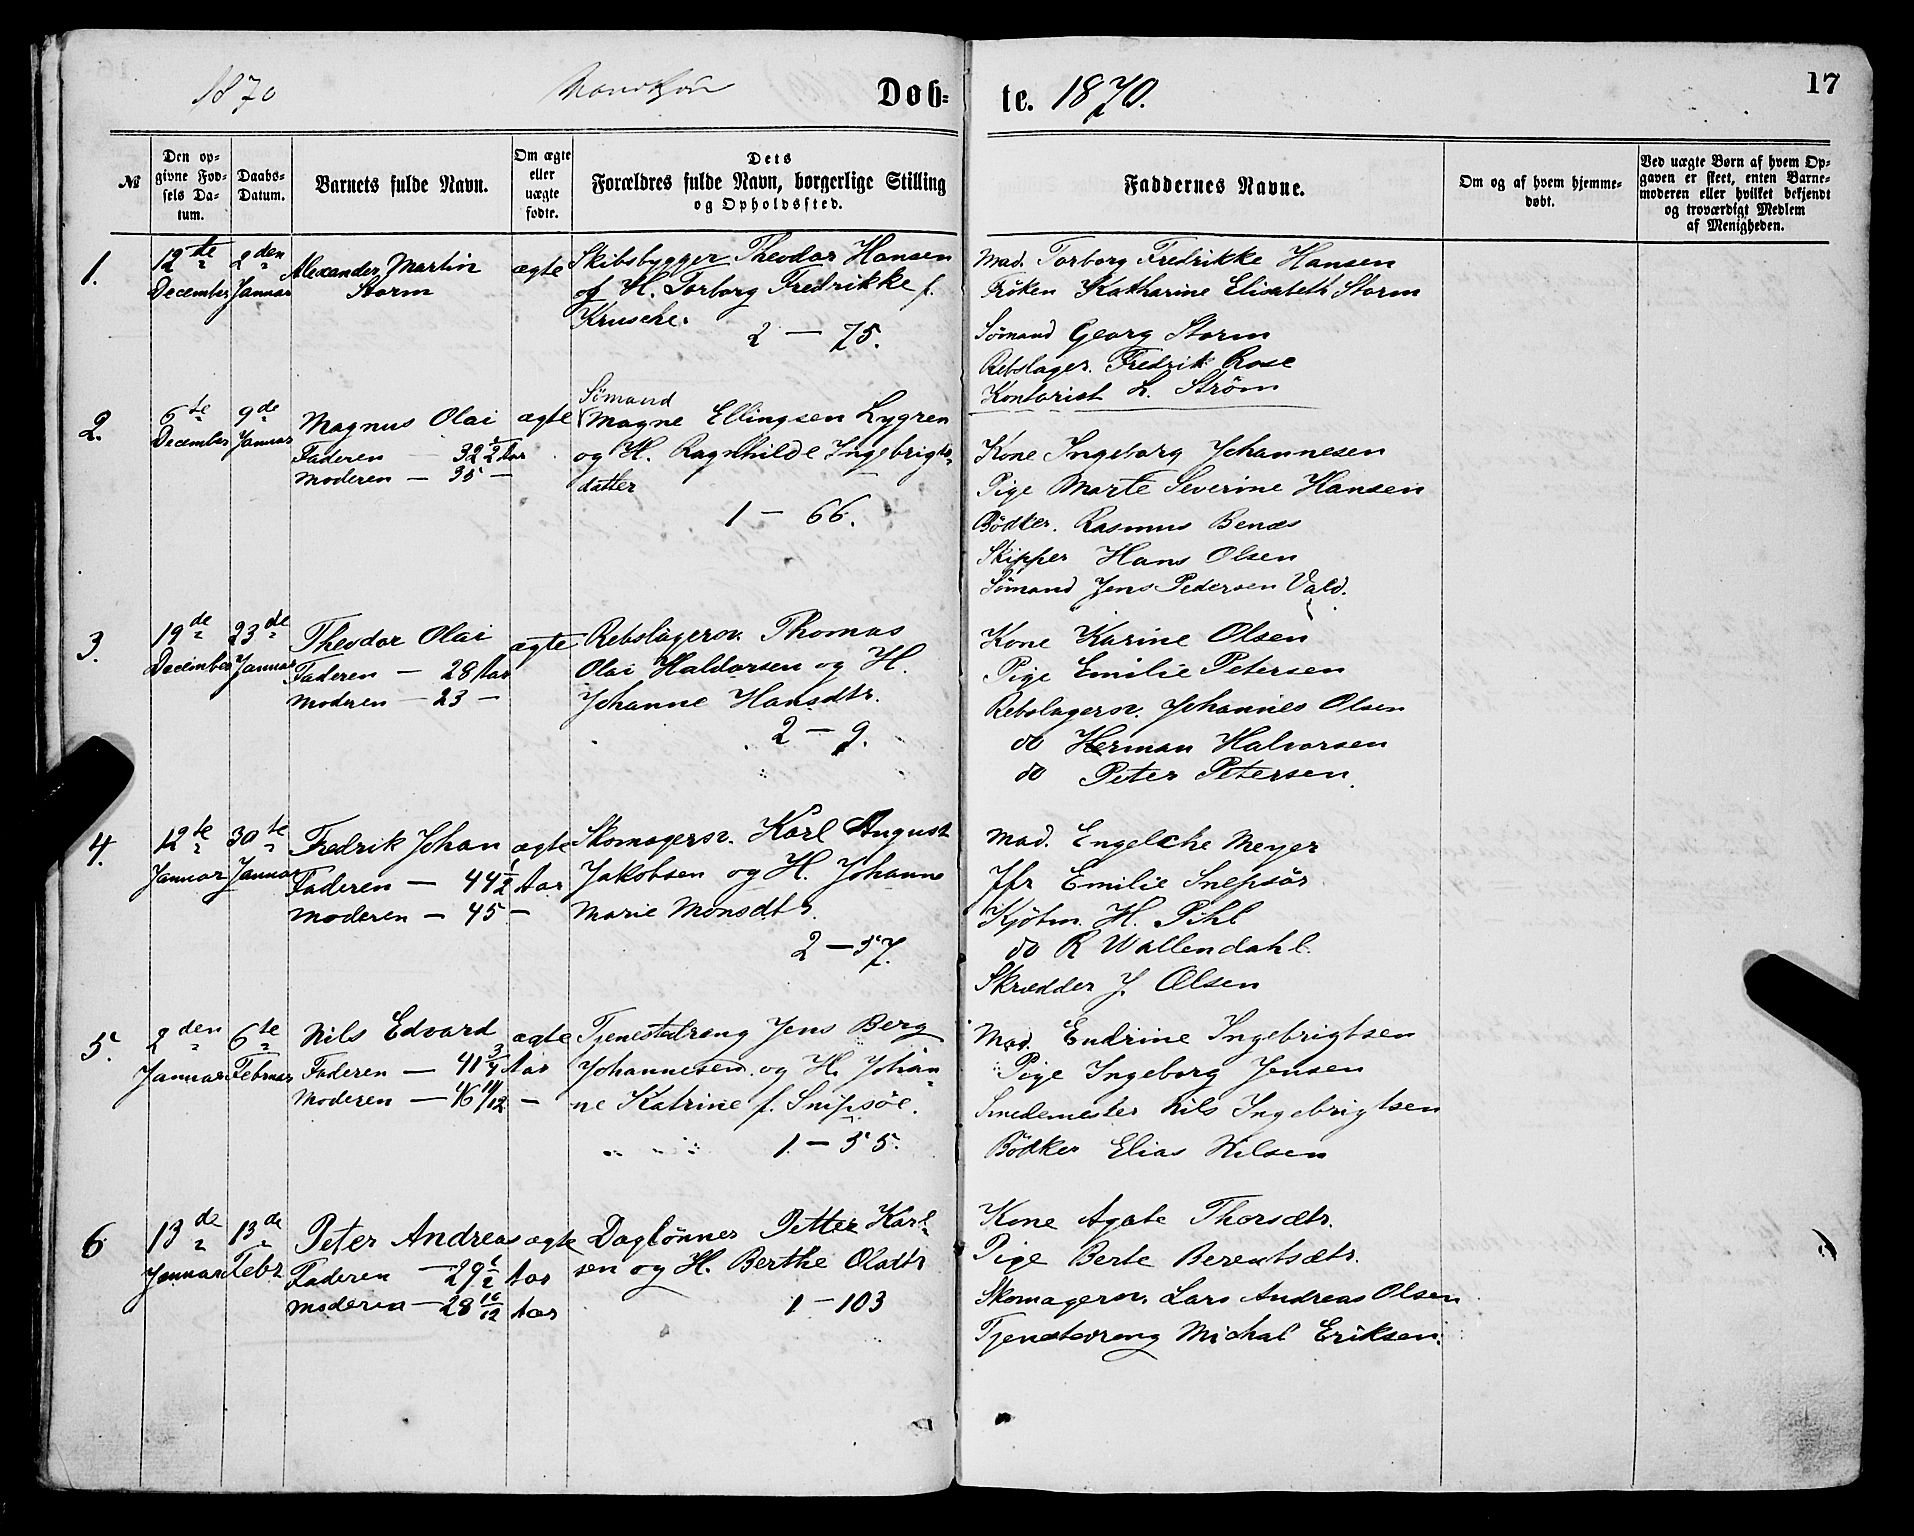 1870 Mandkjön Døb-
№
Den op-
givne Fød-
sels Da-
tum.
Daabs-
Datum.
Barnets fulde Navn.
Om ægte
eller
uægte
fødte.
Dets
Forældres fulde Navn, borgerlige Stilling
og Opholdssted.
1. 12te December 2den Januar Alexander Martin Storm ægte
Skibsbygger Theodor Hansen
og H. Torborg Fredrikke f.
Krusche.
2 — 75.
2. 6te December 9de Januar Magnus Olai ægte
Faderen — 32 1/2 Aar
Moderen — 35 —
Sømand
Magne Ellingsen Lygren
og H. Ragnhilde Ingebrigts-
datter
1 — 66.
3. 19de December 23de Januar Theodor Olai ægte
Faderen — 28 Aar
Moderen — 23 —
Rebslagersv. Thomas
Olai Haldorsen og H.
Johanne Hansdtr.
2 — 9.
4. 12te Januar 30te Januar Fredrik Johan ægte
Faderen — 44 1/2 Aar
Moderen — 45 —
Skomagersv. Karl August
Jakobsen og H. Johanne
Marie Monsdtr.
2 — 57.
5. 2den Januar 6te Februar Nils Edvard ægte
Faderen — 41 3/4 Aar
Moderen — 46 11/12 —
Tjenestedreng Jens Berg
Johannesen og H. Johan-
ne Katrine f. Snipsöe.
1 — 55.
6 13de Januar 13de Febr Peter Andreas ægte
Faderen — 29 1/2 Aar
Moderen — 28 10/12 Aar
Daglønner Petter Karl-
sen og H. Berthe Oladtr
1 — 103
te. 1870.
17
Faddernes Navne.
Om og af hvem hjemme-
døbt.
Ved uægte Børn af hvem Op-
gaven er skeet, enten Barne-
moderen eller hvilket bekjendt
og troværdigt Medlem
af Menigheden.
Mad. Torborg Fredrikke Hansen
Frøken Katharine Elisabeth Storm
Sømand Georg Storm
Rebslager. Fredrik Rose
Kontorist L. Strøm
Kone Ingeborg Johannesen
Pige Marte Severine Hansen
Bödker. Rasmus Benæs
Skipper Hans Olsen
Sømand Jens Pedersen Vald.
Kone Karine Olsen
Pige Emilie Petersen
Rebslagersv. Johannes Olsen
do Herman Halvorsen
do Peter Petersen.
Mad. Engelche Meyer
Jfr Emilie Snepsör
Kjöbm. H. Pihl
do R Wallendahl.
Skrædder J. Olsen
Mad. Endrine Ingebrigtsen
Pige Ingeborg Jensen
Smedemester Nils Ingebrigtsen
Bödker Elias Nilsen
Kone Agate Thorsdtr.
Pige Berte Berentsdtr.
Skomagersv. Lars Andreas Olsen
Tjenestedreng Michal Eriksen.